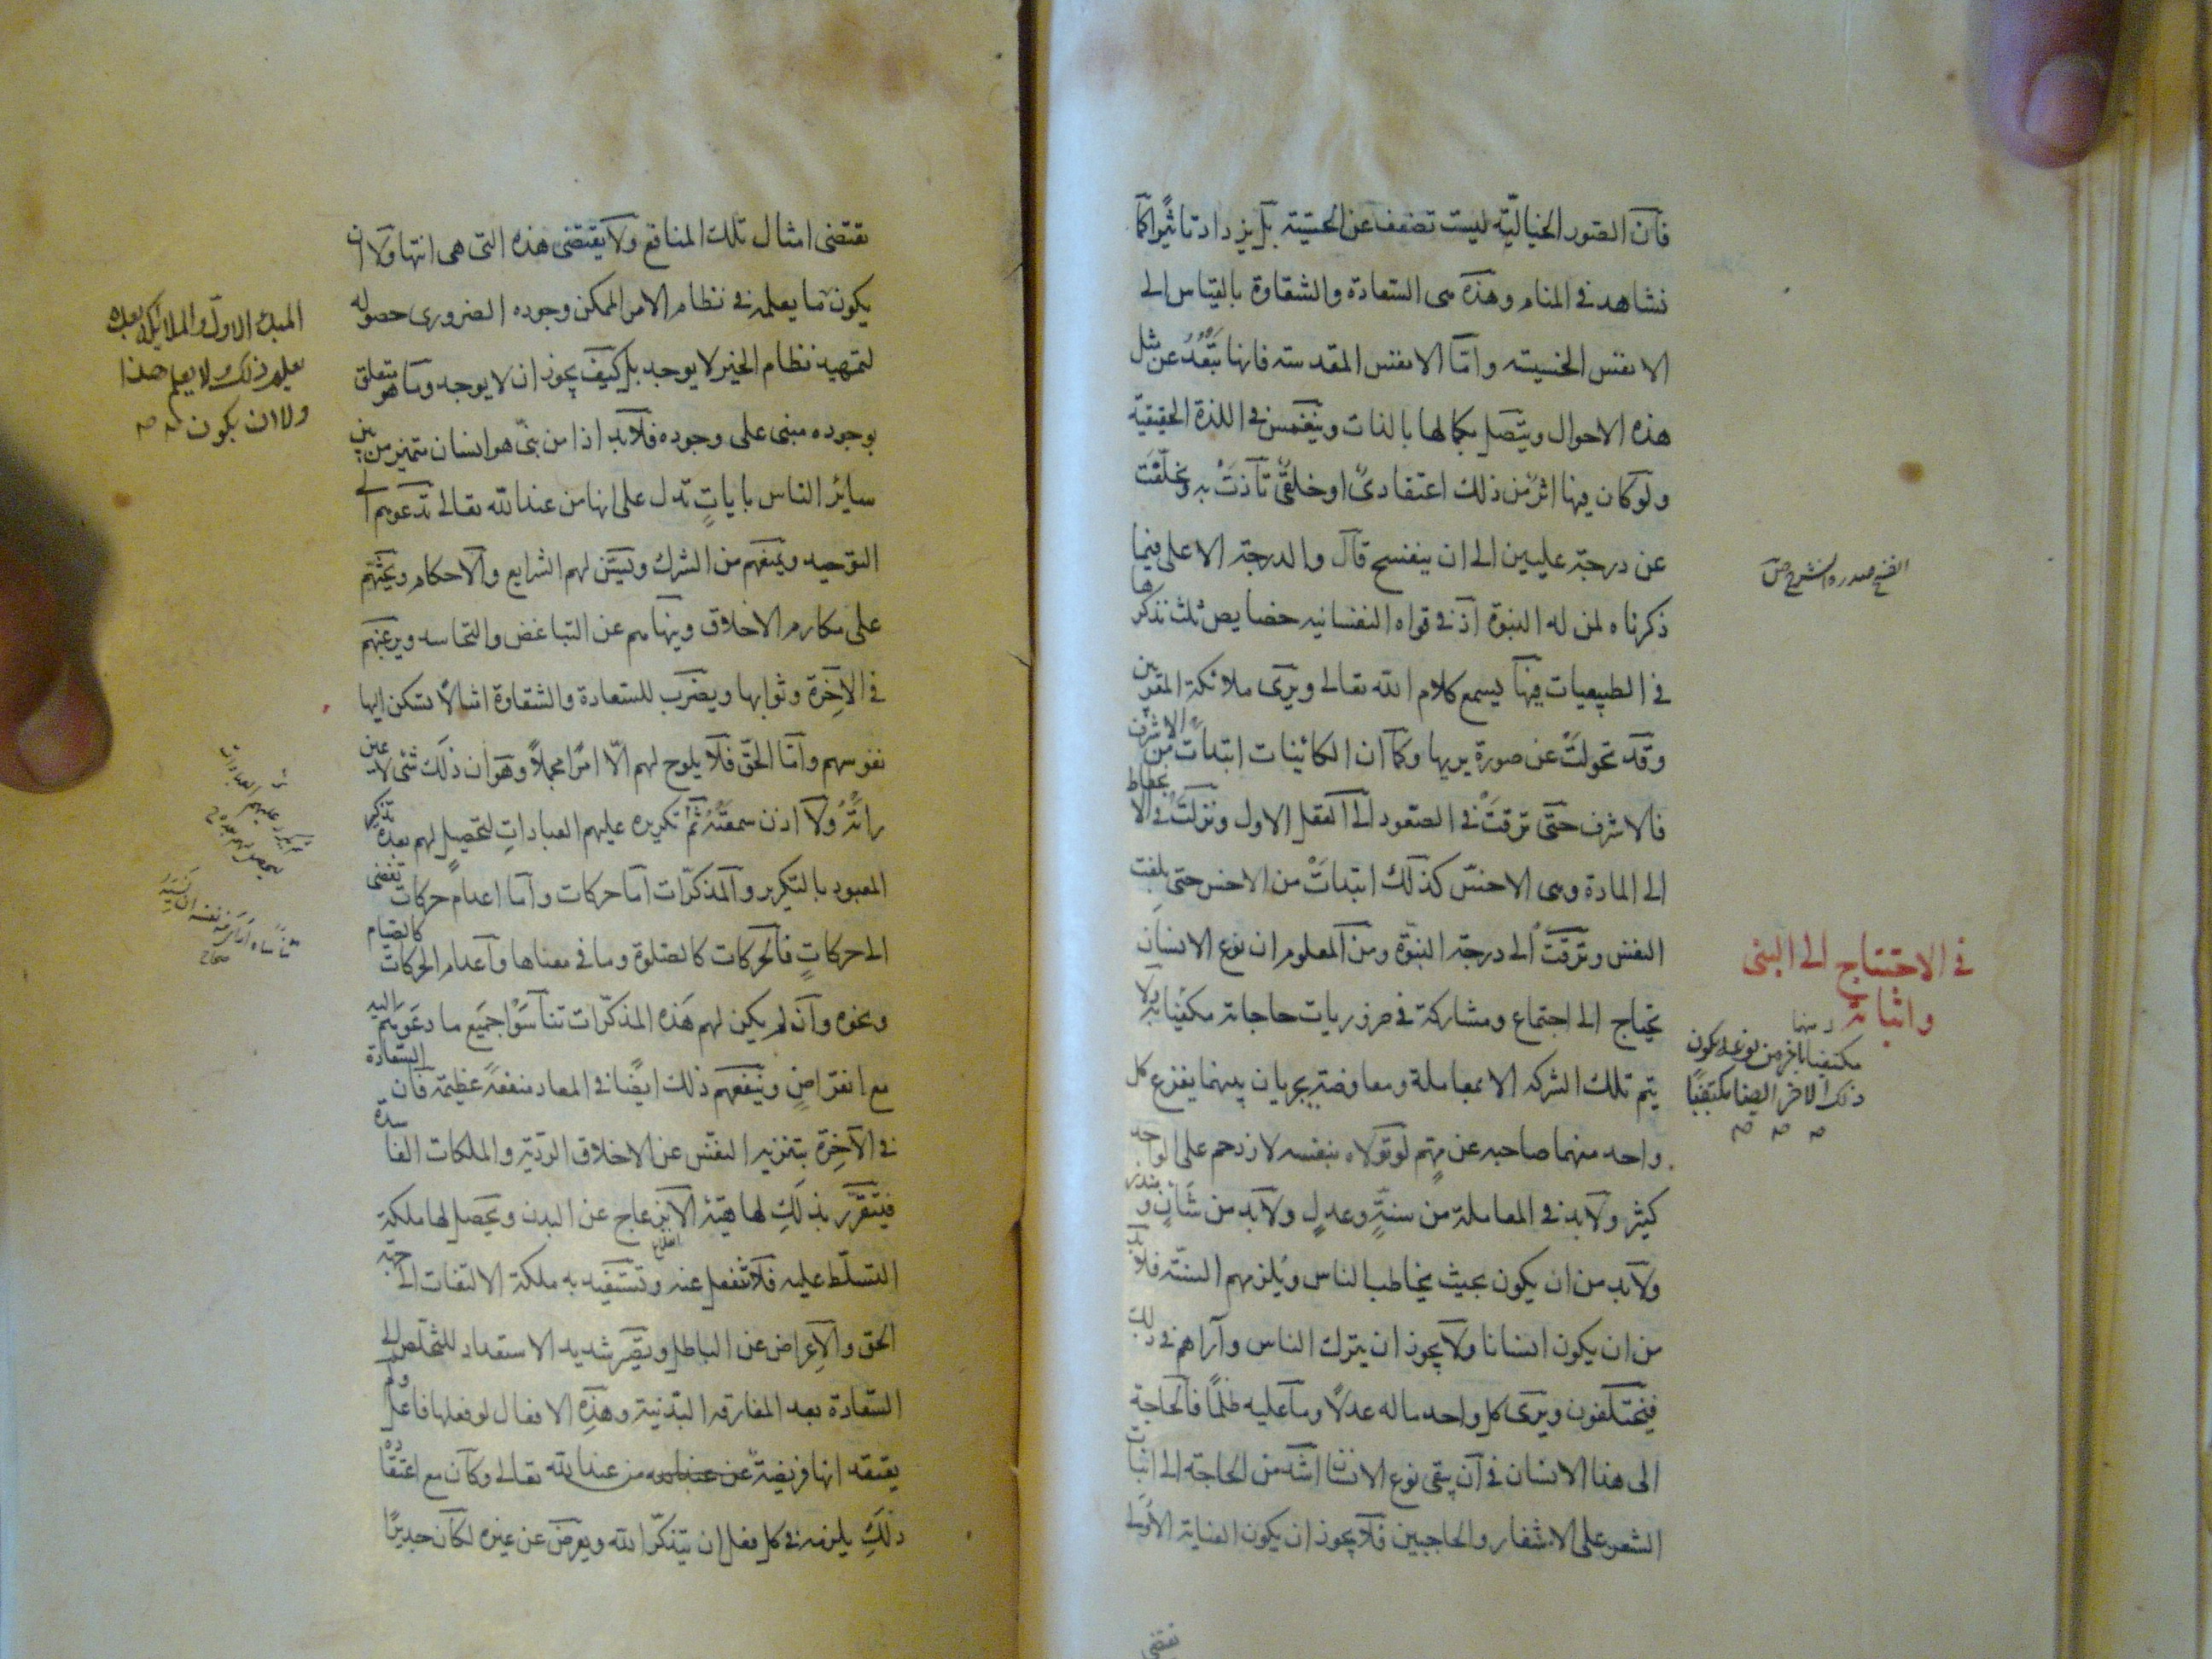 فان الصور الخياليّة ليست تضعف عن الحسّيّة بل يزداد تاثيرًا كما
نشاهد فى المنام وهذه هى السعادة والشقاوة بالقياس الى
الانفس الخسيسة وامّا الانفس المقدسة فانها تبعد عن مثل
هذه الاحوال ويتصل بكمالها بالذات وينغمس فى اللذة الحقيقية
ولو كان فيها اثر من ذلك اعتقادىّ او خلقىّ تأذت به وتخلّفت
عن درجة عليين الى ان ينفسح قال والدرجة الاعلى فيما
ذكرناه لمن له النبوّة اذ فى قواه النفسانيه خصايص ثلث نذكرها
فى الطبيعيات فيها يسمع كلام الله تعالى ويرى ملائكة المقربين
وقد تحولت عن صورة يريها وكما ان الكائنات ابتدات من الاشرف
فالاشرف حتى ترقت فى الصعود الى العقل الاول ونزلت فى الانحطاط
الى المادة وهى الاخس كذلك ابتدات من الاخس حتى بلغت
النفس وترقت الى درجة النبوّة ومن المعلوم ان نوع الانسان
يحتاج الى اجتماع ومشاركة فى ضروريات حاجاته مكفيّا به ولا
يتم تلك الشركة الا بمعاملة ومعاوضة يجريان بينهما يفزع كل
واحد منهما صاحبه عن مهمّ لو تولاه بنفسه لازدحم على الواحد
كثير ولابد فى المعاملة من سنّة وعدل ولابد من سانّ و
ولابد من ان يكون بحيث يخاطب الناس ويلزمهم السنّة فلابد
من ان يكون انسانا ولا يجوز ان يترك الناس وآراهم فى ذلك
فيختلفون ويرى كل واحد ماله عدلا وما عليه ظلمًا فالحاجة
الى هذا الانسان فى ان يبقى نوع الانسان اشد من الحاجة الى انبات
الشعر على الاشفار والحاجبين فلا يجوز ان يكون العناية الاولى
تقتضى
فى الاحتياج الى النبى
واثباته
مكتفيا باخر من نوعه يكون
ذلك الاخر ايضا مكتفيًا
يقتضى امثال تلك المنافع ولا يقتضى هذه التى هى اسّها ولا ان
يكون ما يعلمه فى نظام الامر الممكن وجوده الضرورى حصوله
لتمهيد نظام الخير لا يوجد بل كيف يجوز ان لا يوجد وما هو متعلق
بوجوده مبنى على وجوده فلابد اذا من نبىّ هو انسان متميز من بين
سائر الناس بايات تدل على انها من عند الله تعالى تدعوهم الى
التوحيد ويمنعهم من الشرك ويبيّن لهم الشرايع والاحكام ويحثّهم
على مكارم الاخلاق وينهاهم عن التباغض والتحاسد ويرغبهم
فى الاخرة وثوابها ويضرب للسعادة والشقاوة امثالا تسكن اليها
نفوسهم وامّا الحقّ فلا يلوح لهم الّا امرًا مجملًا وهو ان ذلك شئ لا عين
راته ولا اذن سمعته ثم تكريره عليهم العبادات لتحصيل لهم بعده تذكر
المعبود بالتكرير والمذكرات اما حركات واما اعدام حركات تفضى
الى حركات فالحركات كالصلوة وما فى معناها واعدام الحركات كالصيام
ونحوه وان لم يكن لهم هذه المذكرات تناسوا جميع ما دعوتهم اليه
مع انقراض وينفعهم ذلك ايضًا فى المعاد منفعة عظيمة فان السعادة
فى الآخرة بتنزيه النفس عن الاخلاق الرديّة والملكات الفاسدة
فيتقرر بذلك لها هيئة الانزعاج عن البدن ويحصل لها ملكة
التسلّط عليه فلا تنفعل عنه وتستفيد به ملكة الالتفات الى جهة
الحق والاعراض عن الباطل ويصير شديد الاستعداد للتخلّص الى
السعادة بعد المفارقة البدنية وهذه الافعال لو فعلها فاعل ولم
يعتقد انها فريضة من عند الله تعالى وكان مع اعتقاده
ذلك يلزمه فى كل فعل ان يتذكر الله ويعرض عن غيره لكان جديرًا
المبدء الاول والملائكة بعده
يعلم ذلك ولا يعلم هذا
ولا ان يكون